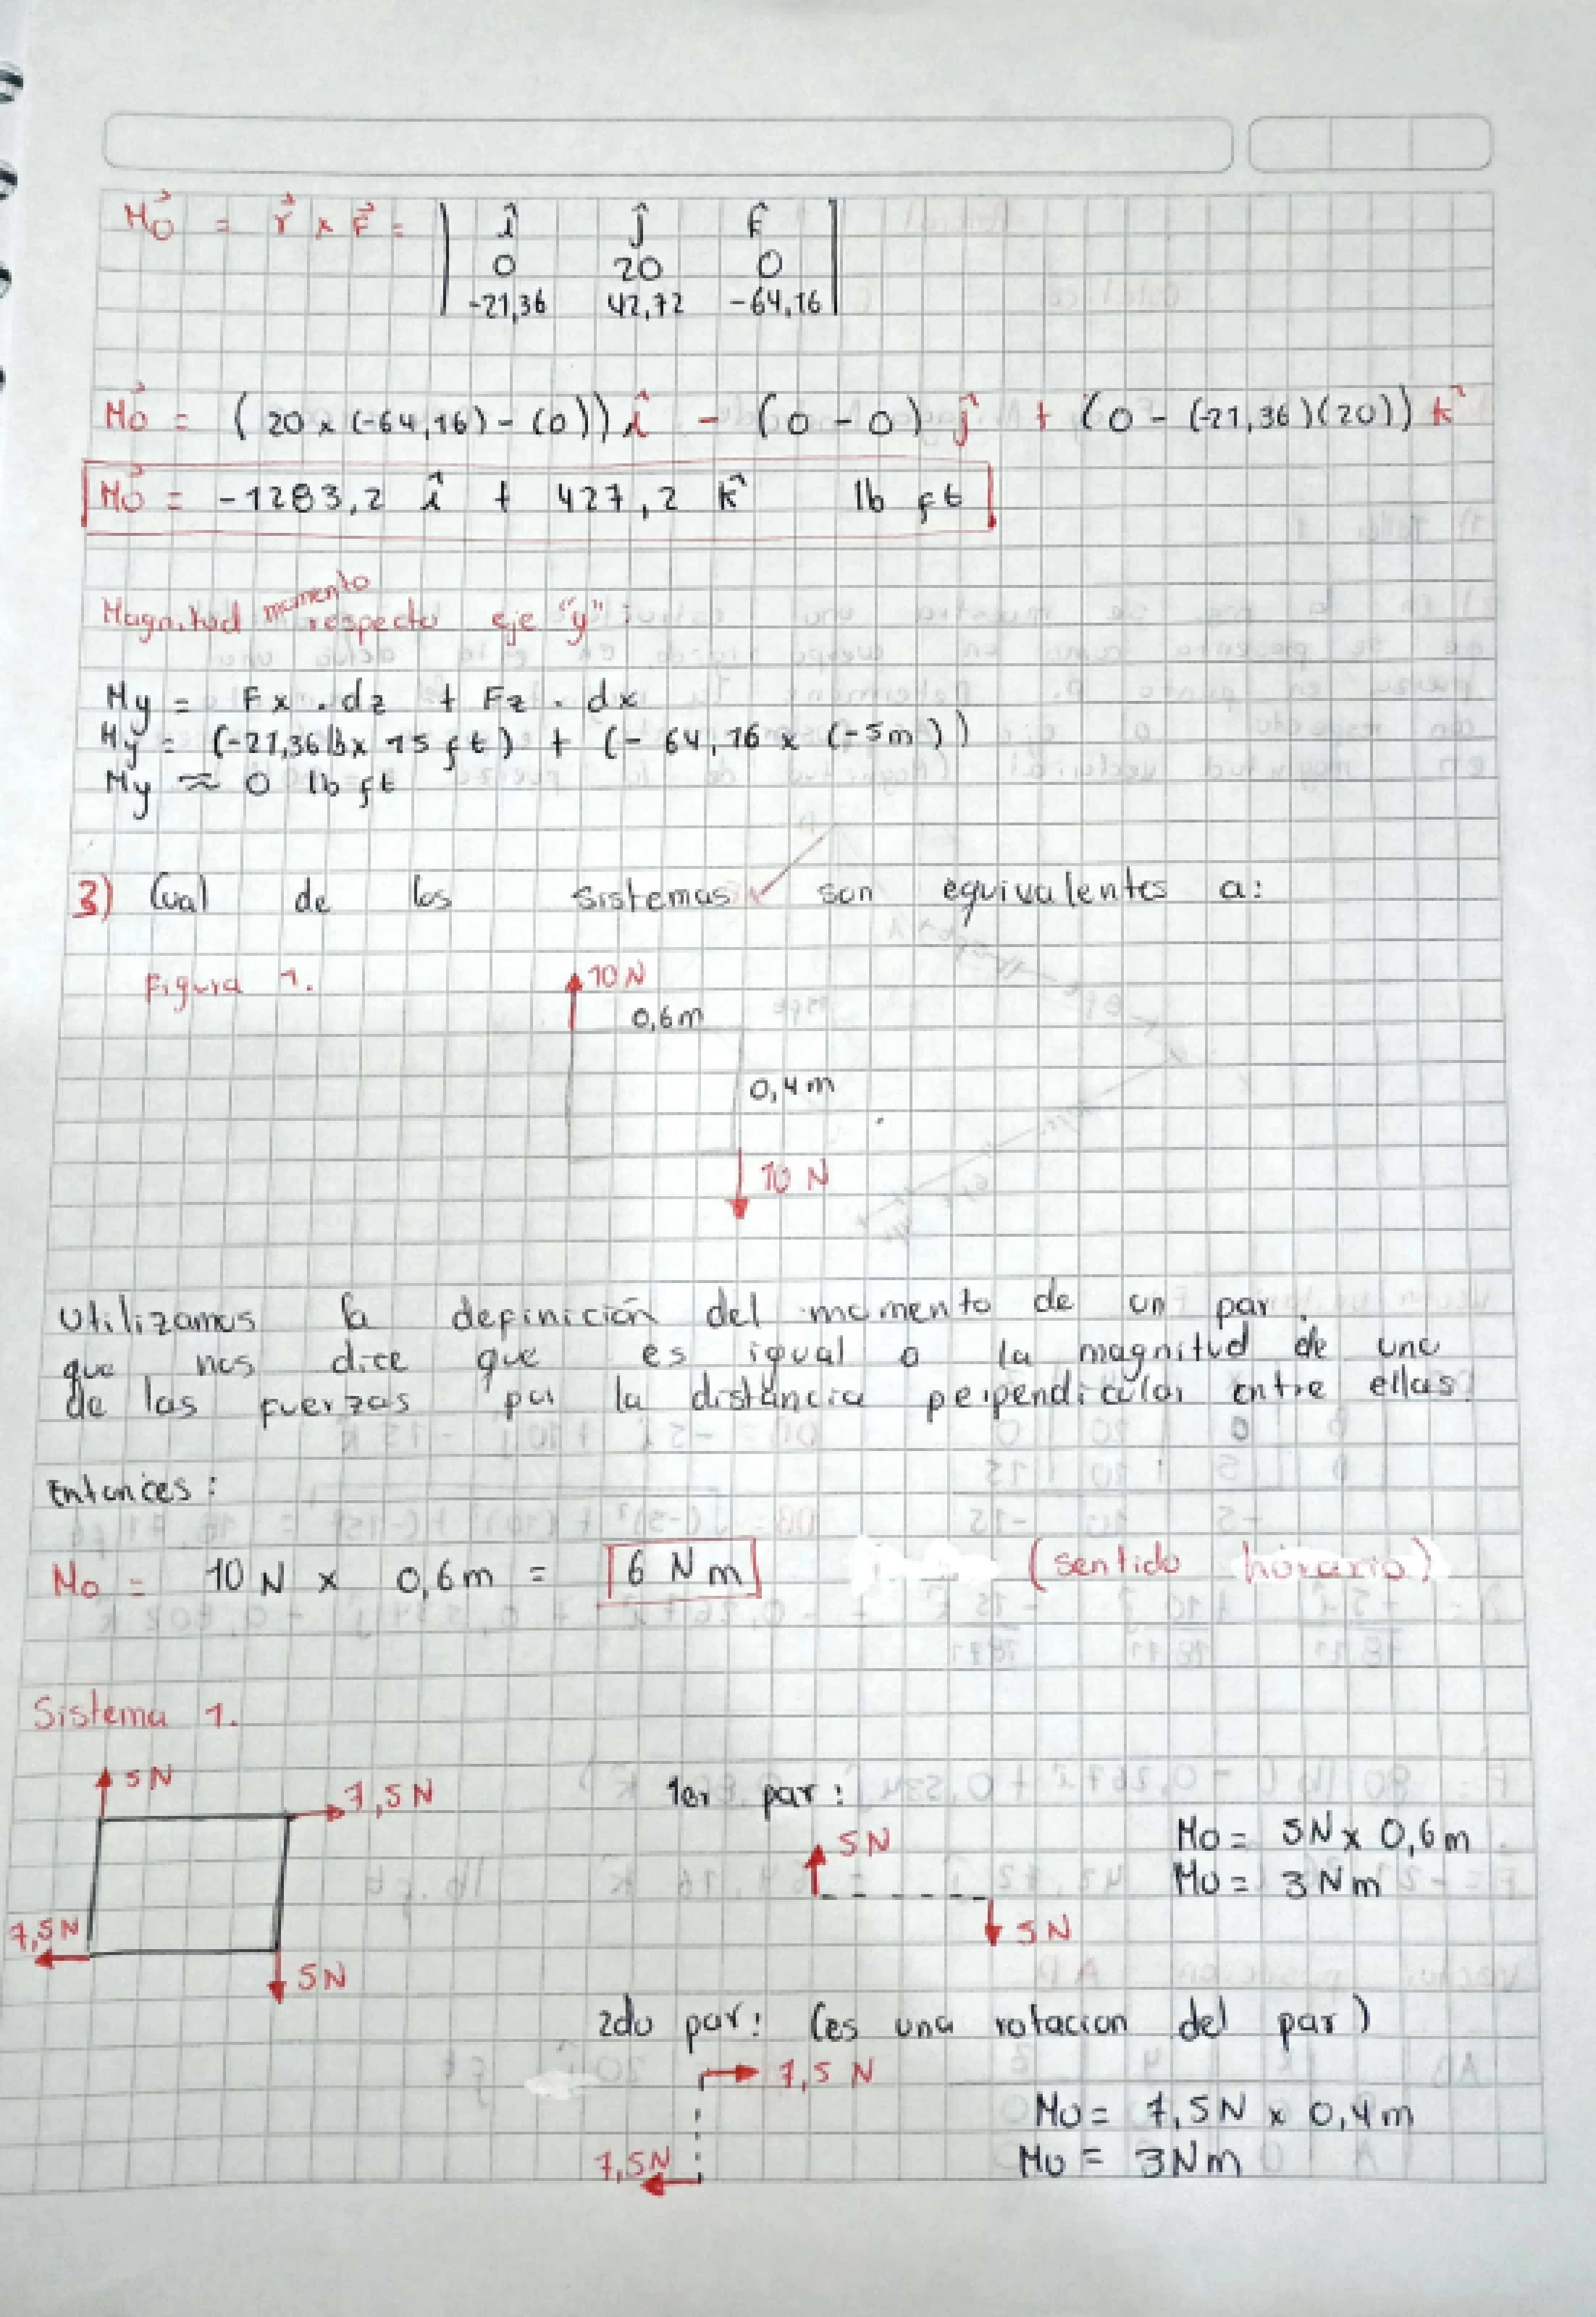 M⃗o = r⃗ x F⃗ = | î ĵ k̂ |
| 0 20 0 |
| -21,36 42,72 -64,16 |
M⃗o = (20 x (-64,16) - (0)) î - (0 - 0) ĵ + (0 - (-21,36)(20)) k̂
M⃗o = -1283,2 î + 427,2 k̂ lb ft
Magnitud momento respecto eje "y":
My = Fx . dz + Fz . dx
My = (-21,36 lb x 15 ft) + (- 64,16 x (-5m))
My ≈ 0 lb ft
3) Cual de los sistemas son equivalentes a:
Figura 1.
10 N
0,6m
0,4m
10 N
Utilizamos la definición del momento de un par.
que nos dice que es igual a la magnitud de una
de las fuerzas por la distancia perpendicular entre ellas.
Entonces:
Mo = 10 N x 0,6m = 6 N m (sentido horario)
Sistema 1.
5N
7,5N
7,5N
5N
1er par:
5N
5N
Mo = 5N x 0,6m
Mo = 3 Nm
2do par: (es una rotacion del par)
7,5 N
7,5N
Mo = 7,5N x 0,4m
Mo = 3Nm